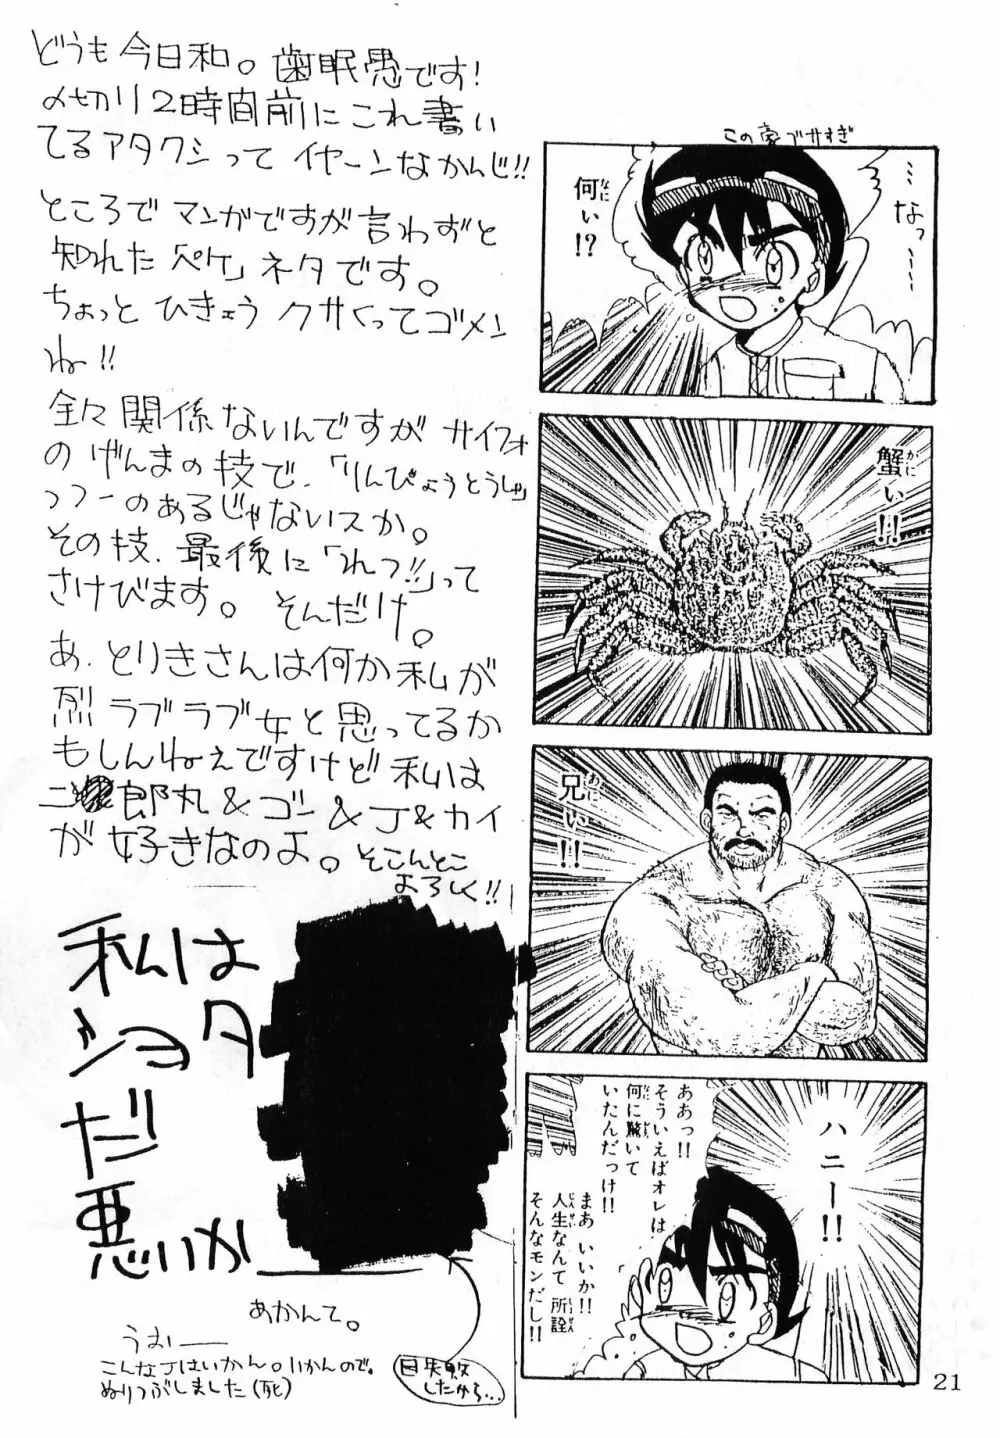 どうも今日和。歯眠愚です!
〆切り2時間前にこれ書い
てるアタクシって イヤーンなかんじ!!
ところで マンガですが言わずと
知れた「ペケ」ネタです。
ちょっと ひきょう クサくってゴメン
ね!!
全々関係ないんですが サイフォ
のげんまの技で、「りんぴょうとうしゃ」
っつーのあるじゃないスか。
その技、最後に「れつ!!」って
さけびます。 そんだけ。
あ、とりきさんは何か私が
烈ラブラブ女と思ってるか
もしんねえですけど 私は
二郎丸&ゴン&J&カイ
が好きなのよ。そこんとこ
よろしく!!
私は
ショタ
だ
悪いか
あかんて。
うおー
こんなJはいかん。いかんので。
ぬりつぶしました(死)
目失敗
したから…
この豪ブサすぎ
…なっ…
何ぃ!?
なに
蟹ぃ!!
かに
兄ぃ!!
あに
ハニー!!
ああっ!!
そういえばオレは
何に驚いて
なに おどろ
いたんだっけ!!
まあ いいか!!
人生なんて 所詮
じんせい しょせん
そんなモンだし!!
21